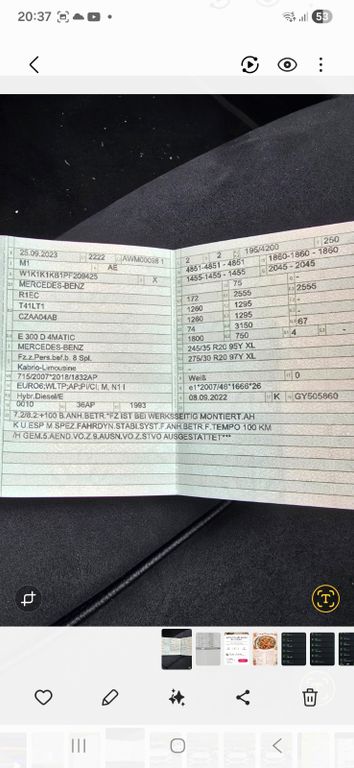 20:37
53
25.09.2023 2222 AWM00098 1
M1 AE
W1K1K1KB1PF209425 X
MERCEDES-BENZ
R1EC
T41LT1
CZAA04AB
E 300 D 4MATIC
MERCEDES-BENZ
Fz.z.Pers.bef.b. 8 Spl.
Kabrio-Limousine
715/2007*2018/1832AP
EURO6;WLTP;AP;PI/CI; M, N1 I
Hybr.Diesel/E
0010 36AP 1993
2 2 195/4200 250
4851-4851 - 4851 1860-1860 - 1860
1455-1455 - 1455 2045 - 2045
75 -
172 2555 2555
1260 1295 -
1260 1295 -
74 3150 67
1800 750 4 -
245/35 R20 95Y XL
275/30 R20 97Y XL
-
Weiß 0
e1*2007/46*1666*26
08.09.2022 K GY505860
7.2/8.2:+100 B.ANH.BETR.*FZ.IST BEI WERKSSEITIG MONTIERT.AH
K U.ESP M.SPEZ.FAHRDYN.STABLSYST.F.ANH.BETR.F.TEMPO 100 KM
/H GEM.5.AEND.VO.Z.9.AUSN.VO.Z.STVO AUSGESTATTET***
T